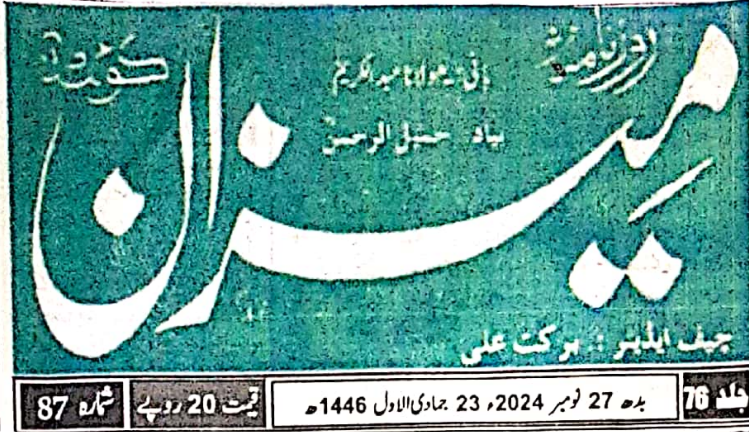 روزنامہ
میزان
کوئٹہ
بانی: مولانا عبدالکریم
بیاد جمیل الرحمن
چیف ایڈیٹر : برکت علی
جلد 76
بدھ 27 نومبر 2024ء 23 جمادی الاول 1446ھ
قیمت 20 روپے
شمارہ 87